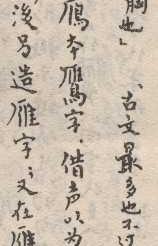 胸也」、古文最多也、不
鴈本鴈鳥字、借声以为
後另造雁字、又在雁